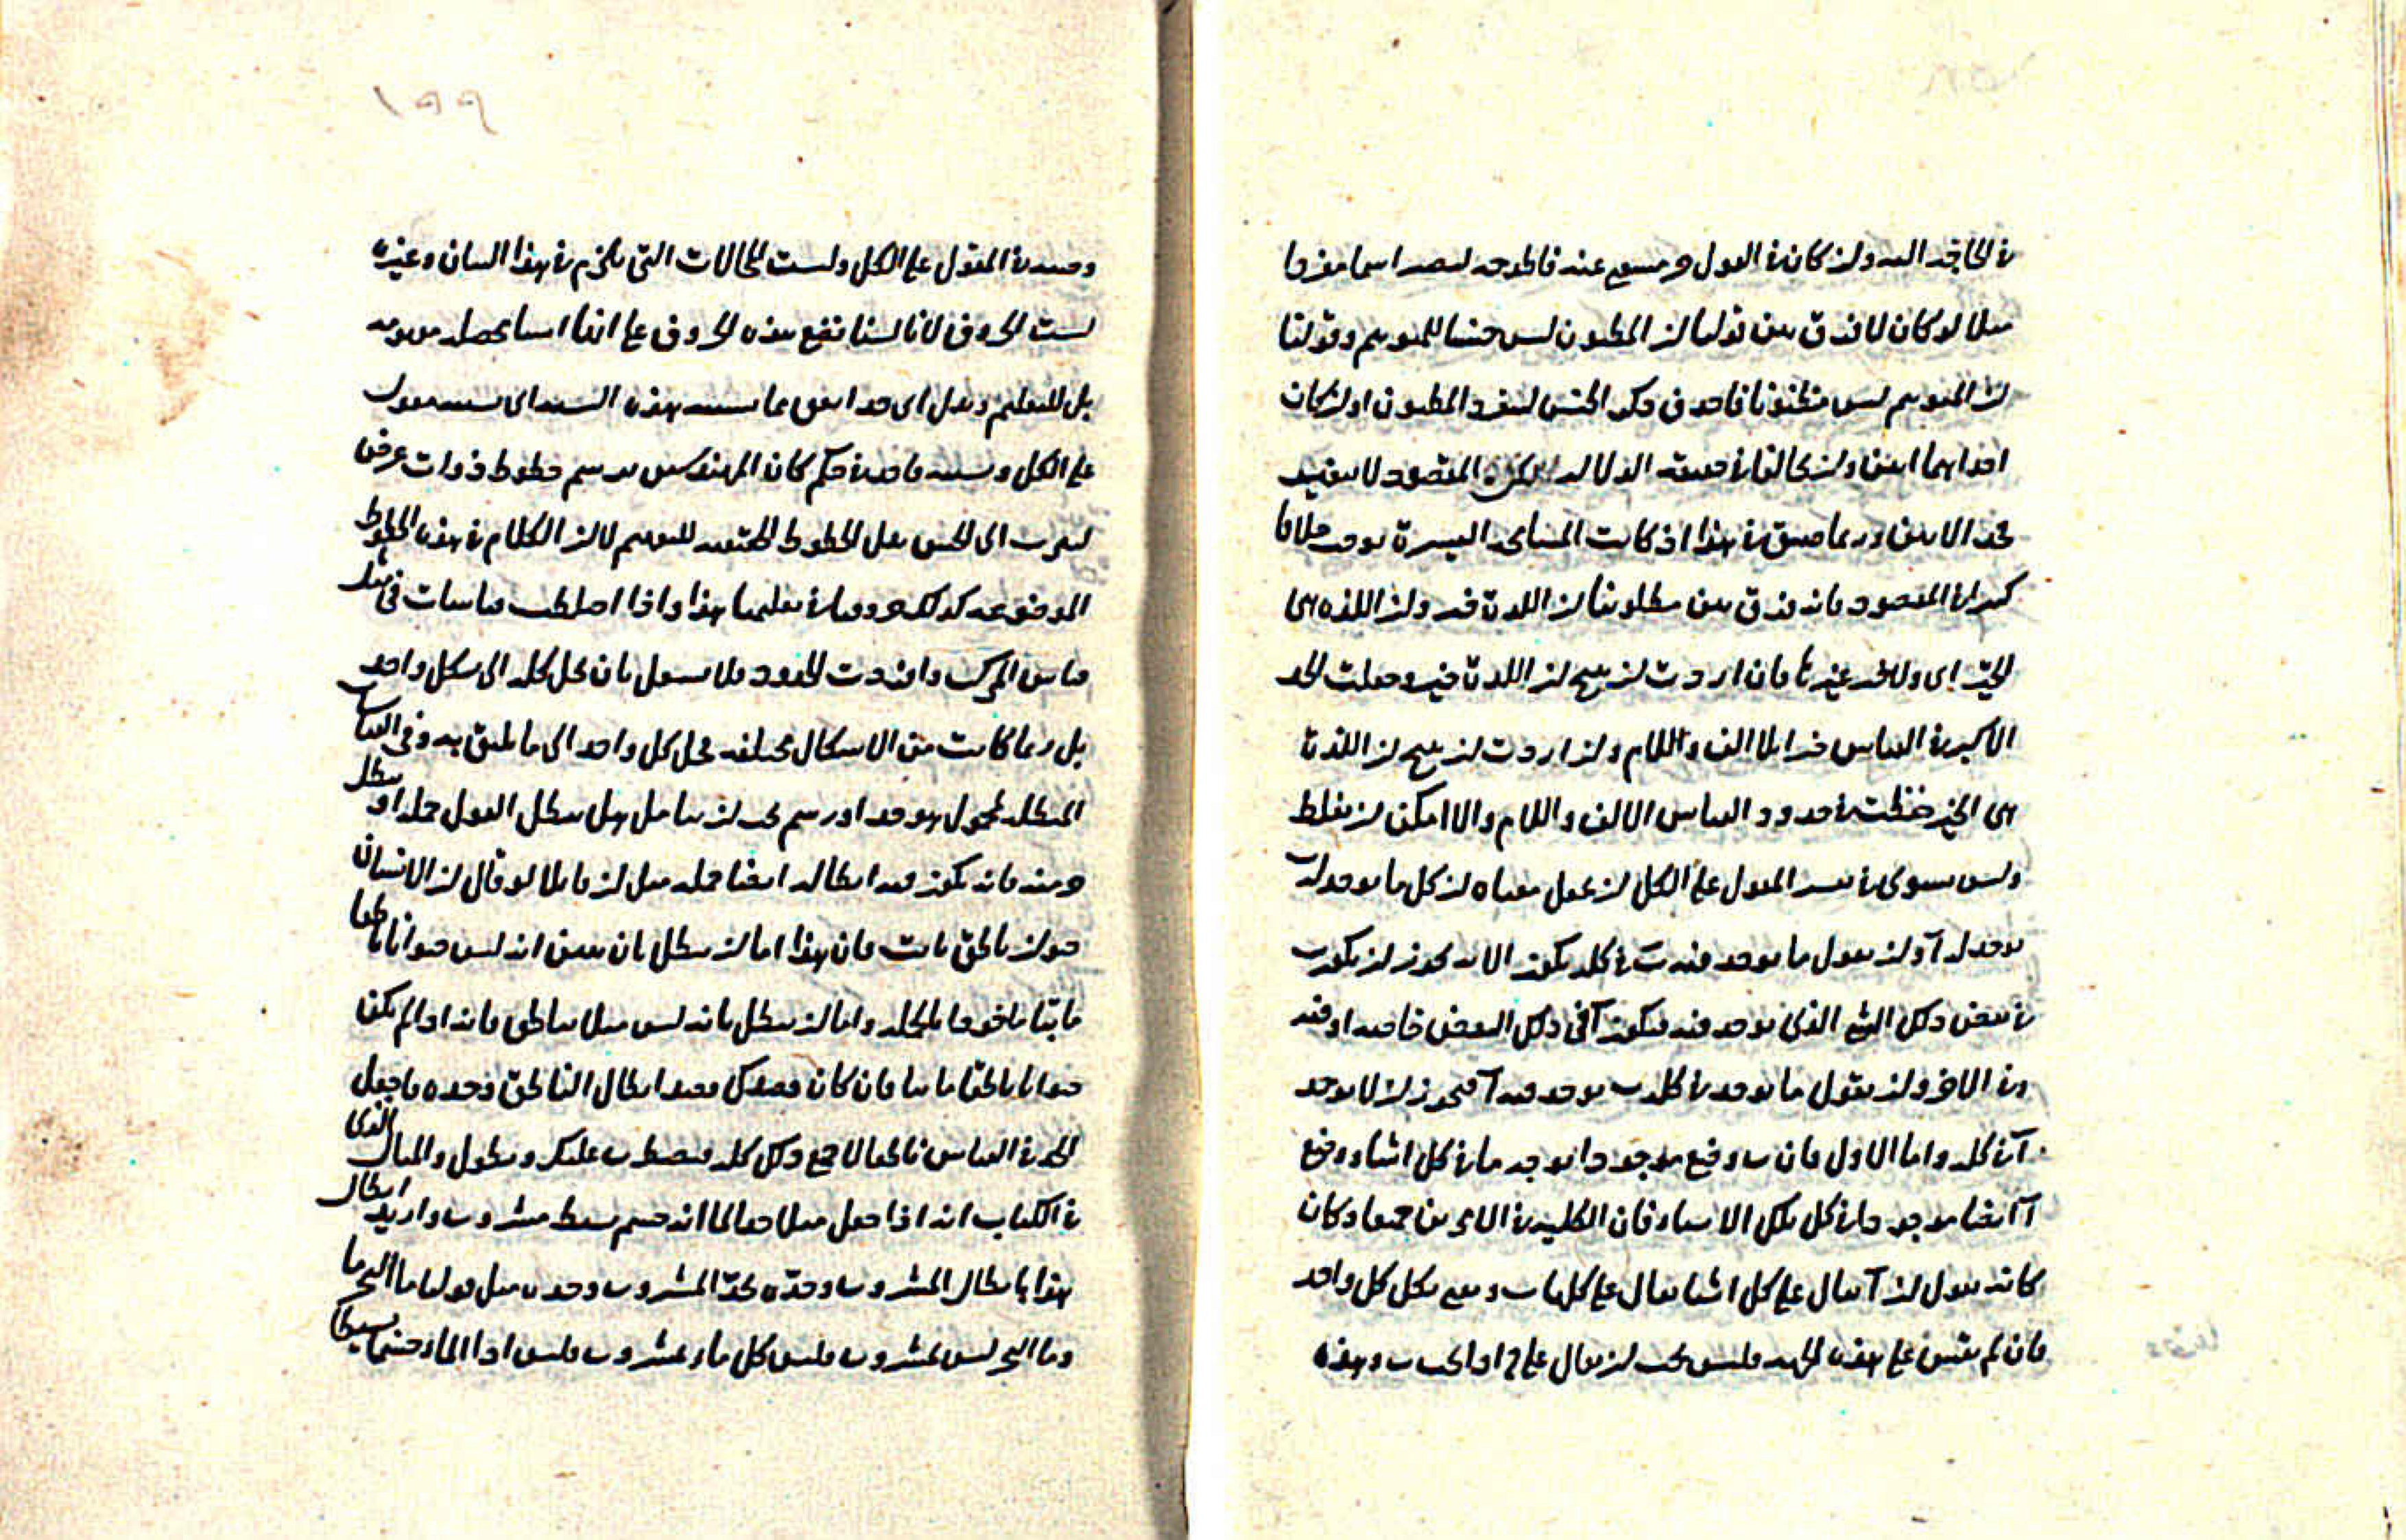 في الحاجة اليه وان كان في القول حد مستغنى عنه فاطرحه ليصير اسما مفردا
مثلا لو كان لا فرق بين قولنا ان المظنون ليس جنسا للمتوهم وقولنا
ان المتوهم ليس مظنونا فاحذف ذكر الجنس ليفرد المظنون او ان كان
احداهما ابين وان تخالفا في حقيقة الدلالة لكن المقصود لا يتغير
فخذ الابين وربما ضيق في هذا اذ كانت المشاحة اليسيرة توجب خلافا
كثيرا في المقصود فانه فرق بين مطلوبنا ان اللذة خير وان اللذة هي
الخير اي ولا خير غيرها فان اردت ان ينتج ان اللذة خير وجعلت الحد
الاكبر في القياس خيرا بلا الف واللام وان اردت ان ينتج ان اللذة
هي الخير حفظت في حدود القياس الالف واللام والا امكن ان يغلط
وليس سوى في تفسير المقول على الكل ان نجعل معناه ان كل ما يوجد له ب
يوجد له آ وان نقول ما يوجد فيه ب في كله يكون الا انه يجوز ان يكون ب
في بعض ذلك الشيء الذي يوجد فيه فيكون آ في ذلك البعض خاصة او فيه
وفي الاخر وان نقول ما يوجد في كله ب يوجد فيه آ فيجوز ان لا يوجد
آ في كله واما الاول فان ب وضع موجودا يوجد ما في كل اشياء ووضع
آ ايضا موجودا في كل تلك الاشياء فان الكلية في الامرين جميعا وكان
كانه يقول ان آ يقال على كل اشيا يقال على كلها ب ونعني بكل كل واحد
فان لم نقس على هذه الجهة فليس يجب ان يقال على ج اذا كب ب وهذه
١٩٩
وحده في المقول على الكل وليست المحالات التي تلزم في هذا البيان وغيره
لسبب الحروف لانا لسنا نضع هذه الحروف على انها اشيا تحصل موهومه
بل للتعليم وبدل اي حد اتفق مما نسبته هذه النسبة اي نسبة مقول
على الكل ونسبة واحد في حكم كان المهندس يرسم خطوط ذوات عرض
ليقرب الى الحس بدل الخطوط الحقيقية للتوهم لا ان الكلام في هذه الخطوط
الموضوعة كذلك حروفنا في تعليمنا هذا واذا اختلطت قياسات في مثل
قياس المركب وافردت الحدود فلا تستعمل بان تحل كله الى شكل واحد
بل ربما كانت من الاشكال مختلفة فحل كل واحد الى ما يليق به وفي القياسات
المبطلة لمحمول هو حد او رسم يجب ان يتامل هل يبطل القول جملة او يبطل
جزء منه فانه يكون فيه ابطاله ايضا جملة مثل ان قائلا لو قال ان الانسان
حيوان ناطق مائت فان هذا اما ان يبطل بان يبين انه ليس حيوانا ناطقا
مائتا ماخوذا بالجملة واما ان يبطل بانه ليس مثلا بناطق فانه اذا لم يكن
حيوانا ناطقا مائتا فان كان قصدك قصد ابطال الناطق وحده فاجعل
الحد في القياس ناطقا لا جمع ذلك كله فيضطرب عليك ويطول والمثال الذي
في الكتاب انه اذا جعل مثلا حد الماء انه جسم بسيط مشروب واريد ابطال
هذا بابطال المشروب وحده فخذ المشروب وحده مثل قولنا ماء البحر ماء
وماء البحر ليس بمشروب فليس كل ماء بمشروب فليس اذا الماء جسما بسيطا